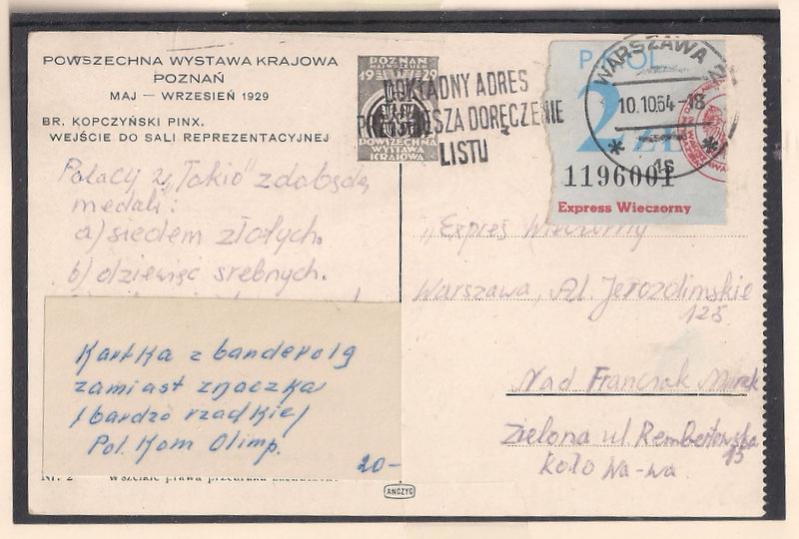 POWSZECHNA WYSTAWA KRAJOWA
POZNAŃ
MAJ — WRZESIEŃ 1929
BR. KOPCZYŃSKI PINX.
WEJŚCIE DO SALI REPREZENTACYJNEJ
POZNAŃ
19 29
POWSZECHNA
WYSTAWA
KRAJOWA
DOKŁADNY ADRES
DORĘCZENIE
LISTU
WARSZAWA 2
10.10.64-18
1s
PKOL
2 ZŁ
1196001
Express Wieczorny
Polacy w "Tokio" zdobędą
medali:
a) siedem złotych.
b) dziewięć srebnych.
"Expres Wieczorny
Warszawa, Al. Jerozolimskie
125
Nad Franczak Marek
Zielona ul Rembertowska
15
koło Wa-wa.
Kartka z banderolą
zamiast znaczka
/bardzo rzadkie/
Pol. Kom Olimp.
20-
Nr. 2
ANCZYC